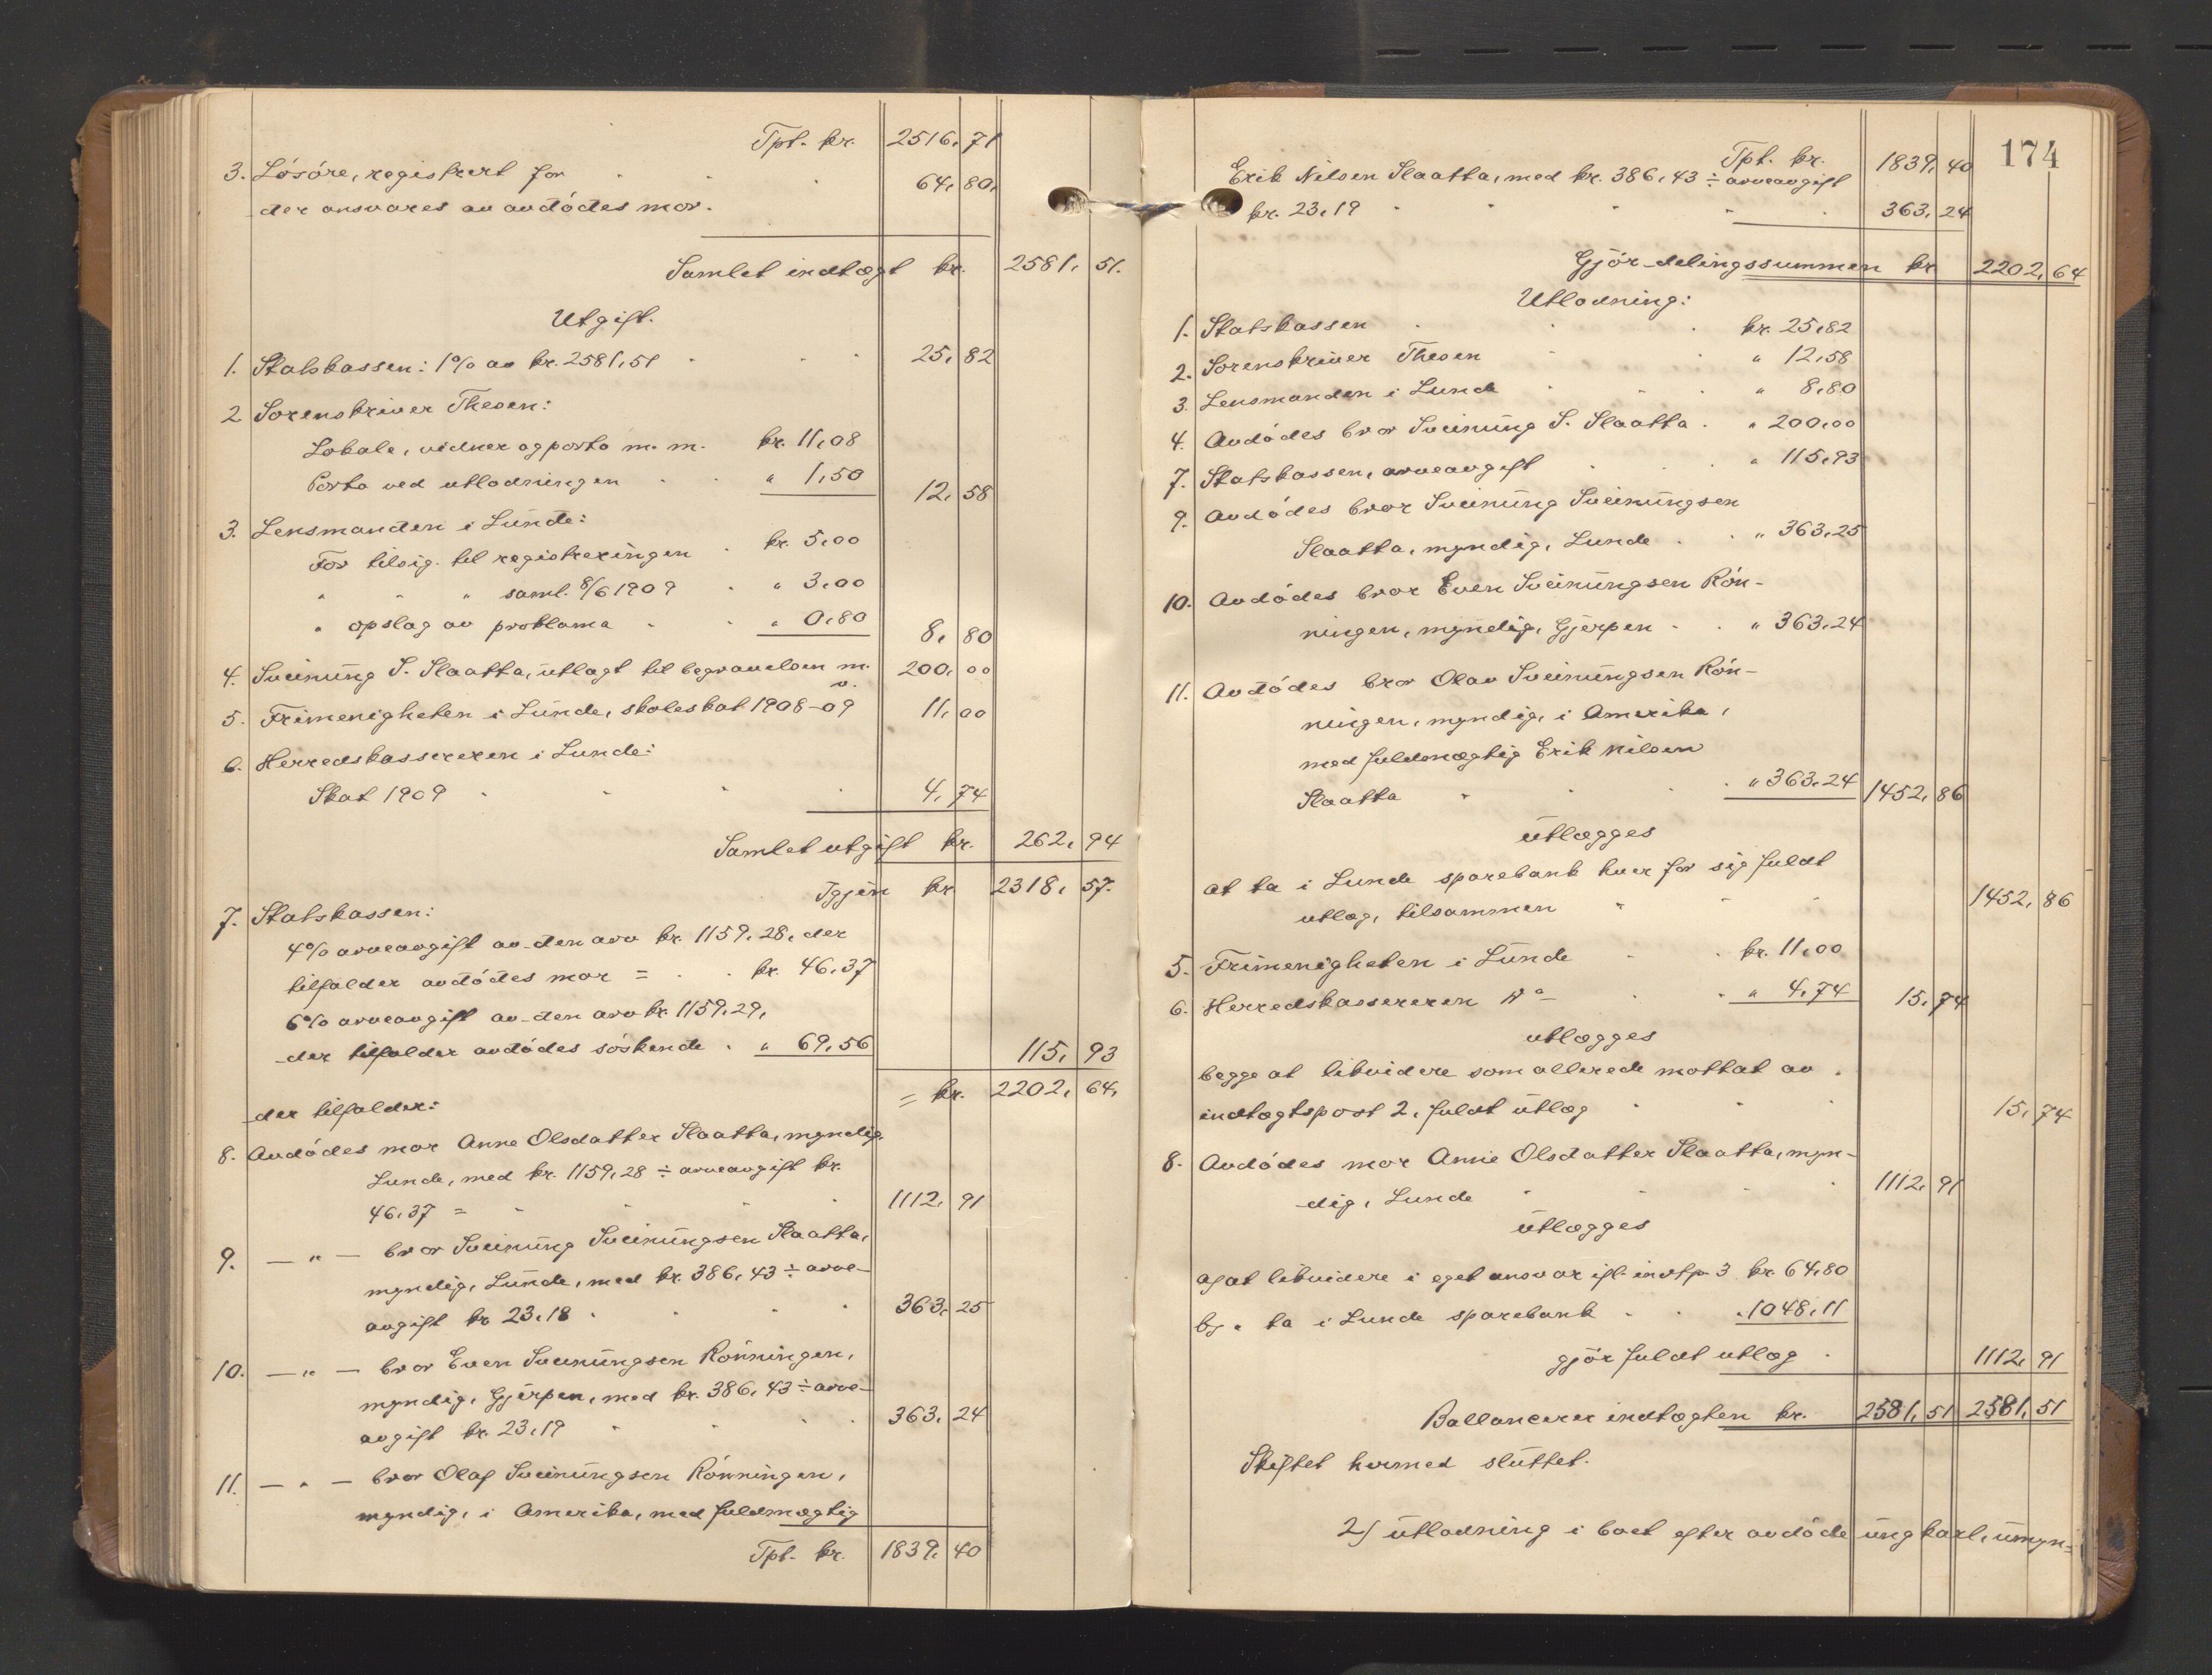 Tpt. kr. 2516,71
3. Lösöre, registrert for 64,80.
der ansvares av avdödes mor.
Samlet indtægt kr. 2581,51.
Utgift.
1. Statskassen: 1% av kr. 2581,51 25,82
2 Sorenskriver Thesen:
Lokale, vidner og porto m. m. kr. 11,08
Porto ved utlodningen " 1,50 12,58
3. Lensmanden i Lunde:
For tilsig. til registreringen kr. 5,00
" " " saml. 8/6 1909 " 3,00
" opslag av proklama " 0,80 8,80
4. Sveinung S. Slaatta, utlagt til begravelsen m. 200,00
v.
5. Frimenigheten i Lunde, skoleskat 1908-09 11,00
6. Herredskassereren i Lunde:
Skat 1909 4,74
Samlet utgift kr. 262,94
Igjen kr. 2318,57.
7. Statskassen:
4% arveavgift av den arv kr. 1159,28, der
tilfalder avdödes mor = kr. 46,37
6% arveavgift av den arv kr. 1159,29,
der tilfalder avdödes söskende " 69,56 115,93
= kr. 2202,64,
der tilfalder:
8. Avdödes mor Anne Olsdatter Slaatta, myndig,
Lunde, med kr. 1159,28 ÷ arveavgift kr.
46,37 = 1112,91
9. — " — bror Sveinung Sveinungsen Slaatta,
myndig, Lunde, med kr. 386,43 ÷ arve-
avgift kr 23,18 363,25
10. — " — bror Even Sveinungsen Rönningen,
myndig, Gjerpen, med kr. 386,43 ÷ arve-
avgift kr. 23,19 363,24
11. — " — bror Olaf Sveinungsen Rönningen,
myndig, i Amerika, med fuldmægtig
Tpt. kr. 1839,40
174
Tpt. kr. 1839,40
Erik Nilsen Slaatta, med kr. 386,43 ÷ arveavgift
kr. 23,19 363,24
Gjör delingssummen kr 2202,64
Utlodning:
1. Statskassen kr. 25,82
2. Sorenskriver Thesen " 12,58
3. Lensmanden i Lunde " 8,80
4. Avdödes bror Sveinung S. Slaatta " 200,00
7. Statskassen, arveavgift " 115,93
9. Avdödes bror Sveinung Sveinungsen
Slaatta, myndig, Lunde " 363,25
10. Avdödes bror Even Sveinungsen Rön-
ningen, myndig, Gjerpen " 363,24
11. Avdödes bror Olav Sveinungsen Rön-
ningen, myndig, i Amerika,
med fuldmægtig Erik Nilsen
Slaatta " 363,24 1452,86
utlægges
at ta i Lunde sparebank hver for sig fuldt
utlæg, tilsammen 1452,86
5. Frimenigheten i Lunde kr. 11,00
6. Herredskassereren do " 4,74 15,74
utlægges
begge at likvidere som allerede mottat av
indtægtspost 2, fuldt utlæg 15,74
8. Avdödes mor Anne Olsdatter Slaatta, myn-
dig, Lunde 1112,91
utlægges
a) at likvidere i eget ansvar ifl. indtp. 3 kr. 64,80
b) " ta i Lunde sparebank " 1048,11
gjör fuldt utlæg 1112,91
Ballancerer indtægten kr. 2581,51 2581,51
Skiftet hermed sluttet.
2) Utlodning i boet efter avdöde ungkarl, umyn-